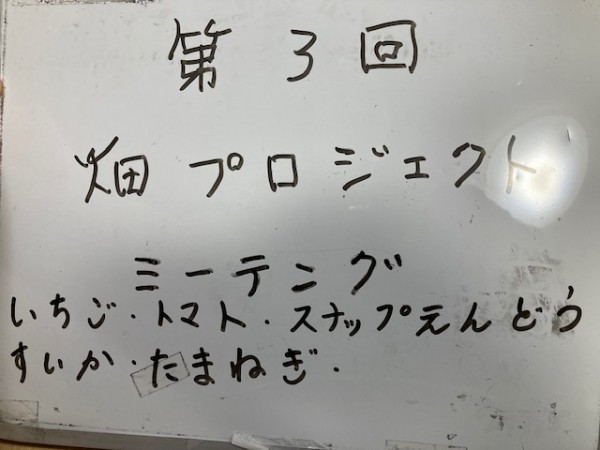 第3回
畑プロジェクト
ミーテング
いちご・トマト・スナップえんどう
すいか・たまねぎ・